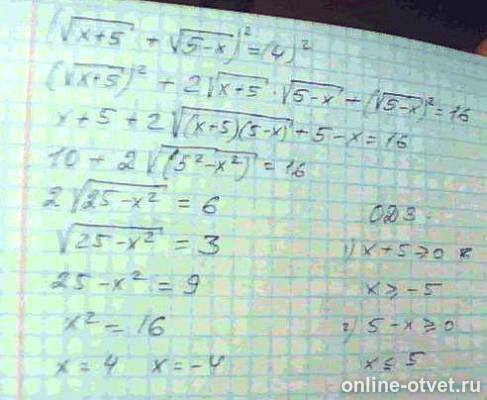 (√(x+5) + √(5-x))² = (4)²
(√(x+5))² + 2√(x+5) · √(5-x) + (√(5-x))² = 16
x + 5 + 2√((x+5)(5-x)) + 5 - x = 16
10 + 2√(5²-x²) = 16
2√(25-x²) = 6
√(25-x²) = 3
25 - x² = 9
x² = 16
x = 4 x = -4
ОДЗ.
1) x + 5 ≥ 0
x ≥ -5
2) 5 - x ≥ 0
x ≤ 5
online-otvet.ru